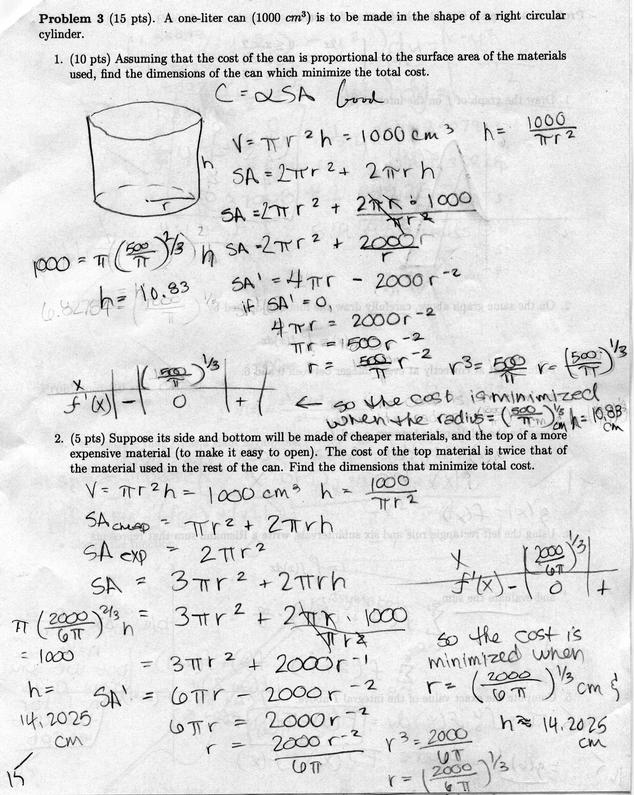 Problem 3 (15 pts). A one-liter can (1000 cm³) is to be made in the shape of a right circular
cylinder.
1. (10 pts) Assuming that the cost of the can is proportional to the surface area of the materials
used, find the dimensions of the can which minimize the total cost.
C = αSA Good
V = πr²h = 1000 cm³ h = 1000/πr²
h
r
SA = 2πr² + 2πrh
SA = 2πr² + 2πr · 1000/πr²
1000 = π(500/π)^2/3 h
SA = 2πr² + 2000/r
h = 10.83
SA' = 4πr - 2000r⁻²
if SA' = 0,
4πr = 2000r⁻²
πr = 500r⁻²
r = 500/π r⁻² r³ = 500/π r = (500/π)^1/3
x | | (500/π)^1/3 |
f'(x) | - | 0 | +
← so the cost is minimized
when the radius = (500/π)^1/3 cm h = 10.83 cm
2. (5 pts) Suppose its side and bottom will be made of cheaper materials, and the top of a more
expensive material (to make it easy to open). The cost of the top material is twice that of
the material used in the rest of the can. Find the dimensions that minimize total cost.
V = πr²h = 1000 cm³ h = 1000/πr²
SA cheap = πr² + 2πrh
SA exp = 2πr²
SA = 3πr² + 2πrh
x | | (2000/6π)^1/3 |
f'(x) | - | 0 | +
= 3πr² + 2πr · 1000/πr²
π(2000/6π)^2/3 h
= 1000
h =
14.2025
cm
= 3πr² + 2000r⁻¹
SA' = 6πr - 2000r⁻²
6πr = 2000r⁻²
r = 2000r⁻²/6π
r³ = 2000/6π
r = (2000/6π)^1/3
so the cost is
minimized when
r = (2000/6π)^1/3 cm &
h ≈ 14.2025
cm
15